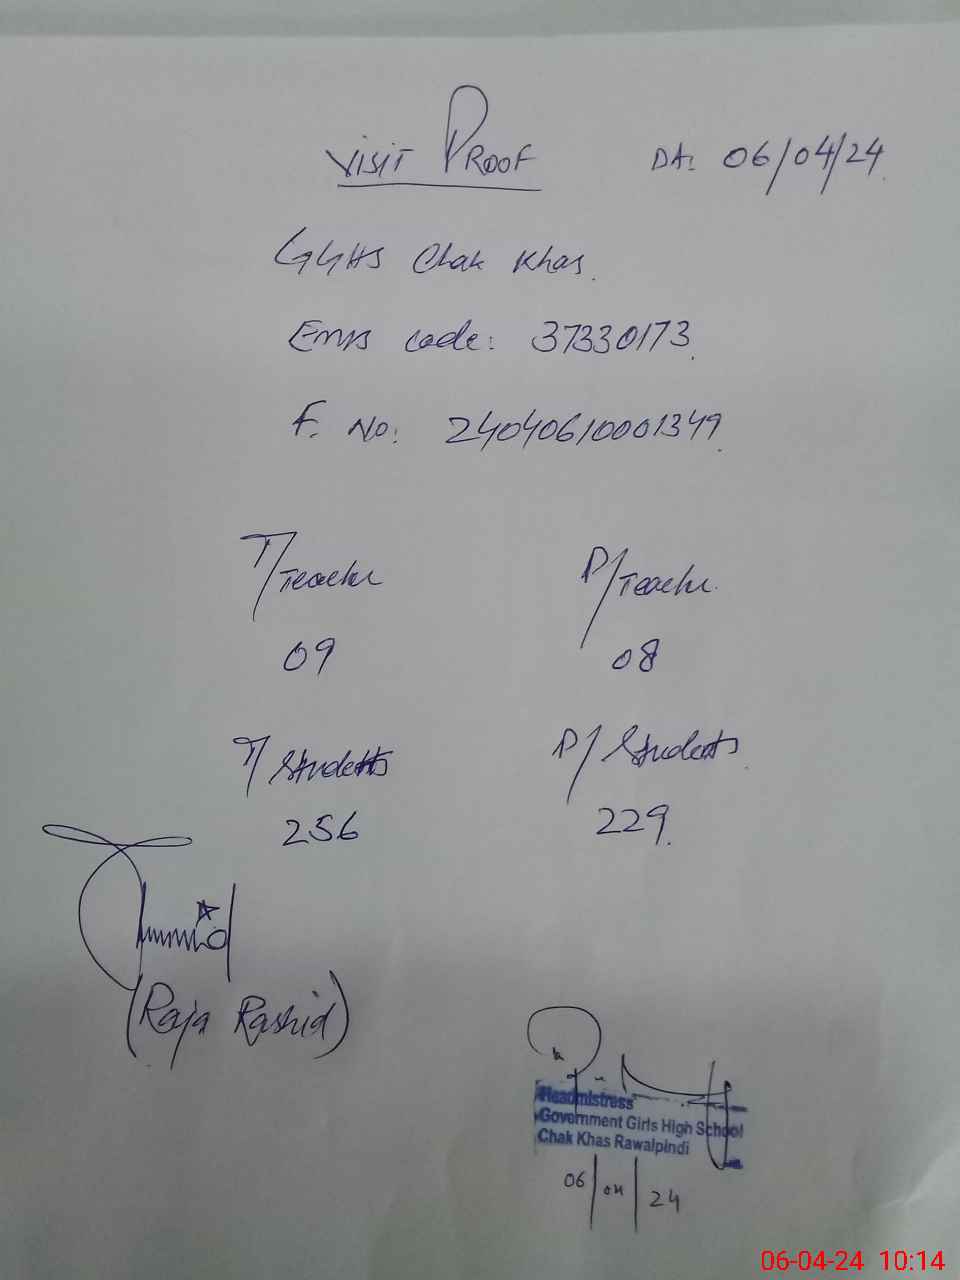 VISIT PROOF DA: 06/04/24
GGHS Chak Khas.
Emis code: 37330173
F. No: 24040610001349
T/Teacher P/Teacher
09 08
T/Students P/Students
256 229
(Raja Rashid)
Headmistress
Government Girls High School
Chak Khas Rawalpindi
06/04/24
06-04-24 10:14